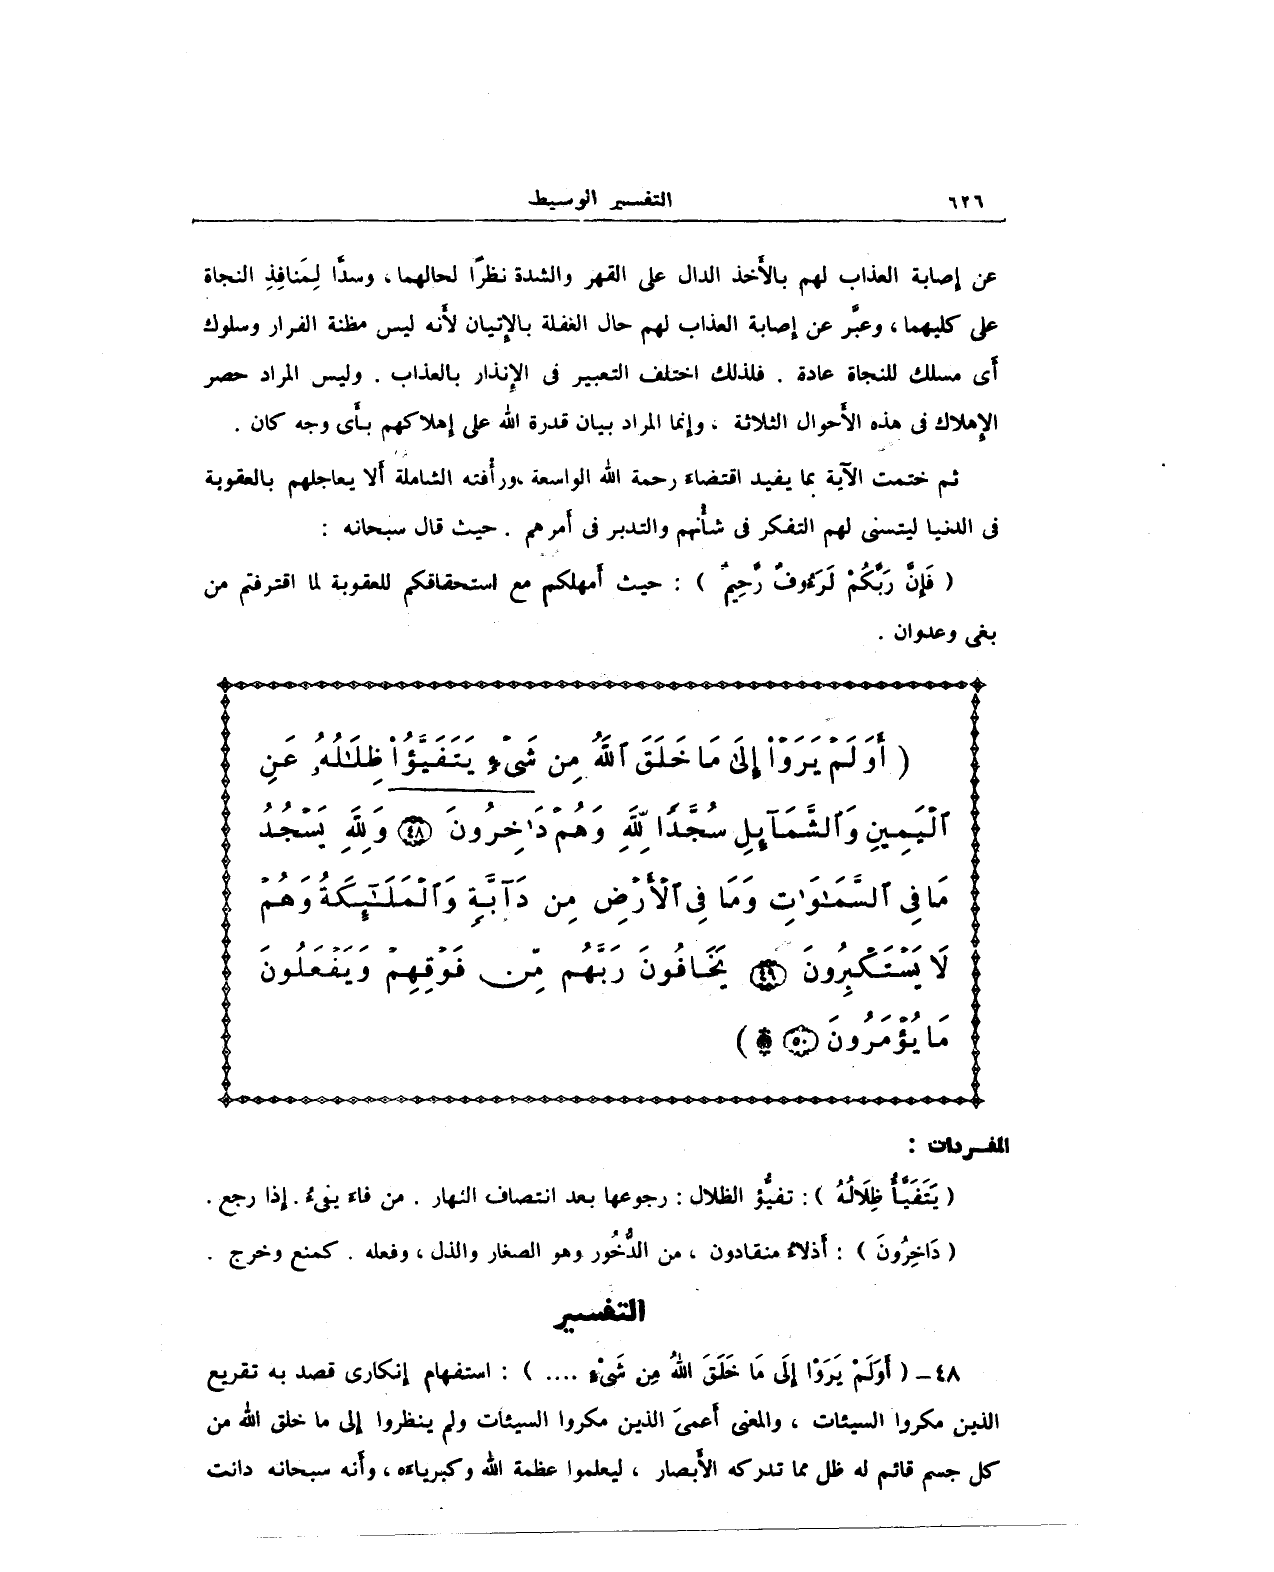 ٦٢٦
التفسير الوسيط
عن إصابة العذاب لهم بالأَخذ الدال على القهر والشدة نظرًا لحالهما، وسدًّا لِمَنافِذِ النجاة
على كليهما، وعبَّر عن إصابة العذاب لهم حال الغفلة بالإِتيان لأَنه ليس مظنة الفرار وسلوك
أَى مسلك للنجاة عادة . فلذلك اختلف التعبير فى الإِنذار بالعذاب . وليس المراد حصر
الإِهلاك فى هذه الأَحوال الثلاثة ، وإنما المراد بيان قدرة الله على إهلاكهم بأَى وجه كان .
ثم ختمت الآية بما يفيد اقتضاءَ رحمة الله الواسعة ،ورأْفته الشاملة أَلا يعاجلهم بالعقوبة
فى الدنيا ليتسنى لهم التفكر فى شأْنهم والتدبر فى أَمرهم . حيث قال سبحانه :
( فَإِنَّ رَبَّكُمْ لَرَءُوفٌ رَّحِيمٌ ) : حيث أَمهلكم مع استحقاقكم للعقوبة لما اقترفتم من
بغى وعدوان .
( أَوَلَمْ يَرَوْاْ إِلَىٰ مَا خَلَقَ ٱللَّهُ مِن شَىْءٍ يَتَفَيَّؤُاْ ظِلَـٰلُهُۥ عَنِ
ٱلْيَمِينِ وَٱلشَّمَآئِلِ سُجَّدًا لِّلَّهِ وَهُمْ دَٰخِرُونَ ٤٨ وَلِلَّهِ يَسْجُدُ
مَا فِى ٱلسَّمَـٰوَٰتِ وَمَا فِى ٱلْأَرْضِ مِن دَآبَّةٍ وَٱلْمَلَـٰٓئِكَةُ وَهُمْ
لَا يَسْتَكْبِرُونَ ٤٩ يَخَافُونَ رَبَّهُم مِّن فَوْقِهِمْ وَيَفْعَلُونَ
مَا يُؤْمَرُونَ ٥٠ ۩ )
المفـردات :
( يَتَفَيَّأُ ظِلَالُهُ ) : تفيُّؤ الظلال : رجوعها بعد انتصاف النهار . من فاءَ يفىءُ . إذا رجع .
( دَاخِرُونَ ) : أَذلاءُ منقادون ، من الدُّخُور وهو الصغار والذل ، وفعله . كمنع وخرج .
التفسير
٤٨ – ( أَوَلَمْ يَرَوْا إِلَى مَا خَلَقَ اللهُ مِن شَىْءٍ .... ) : استفهام إنكارى قصد به تقريع
الذين مكروا السيئات ، والمعنى أَعمىَ الذين مكروا السيئات ولم ينظروا إلى ما خلق الله من
كل جسم قائم له ظل مما تدركه الأَبصار ، ليعلموا عظمة الله وكبرياءه ، وأَنه سبحانه دانت